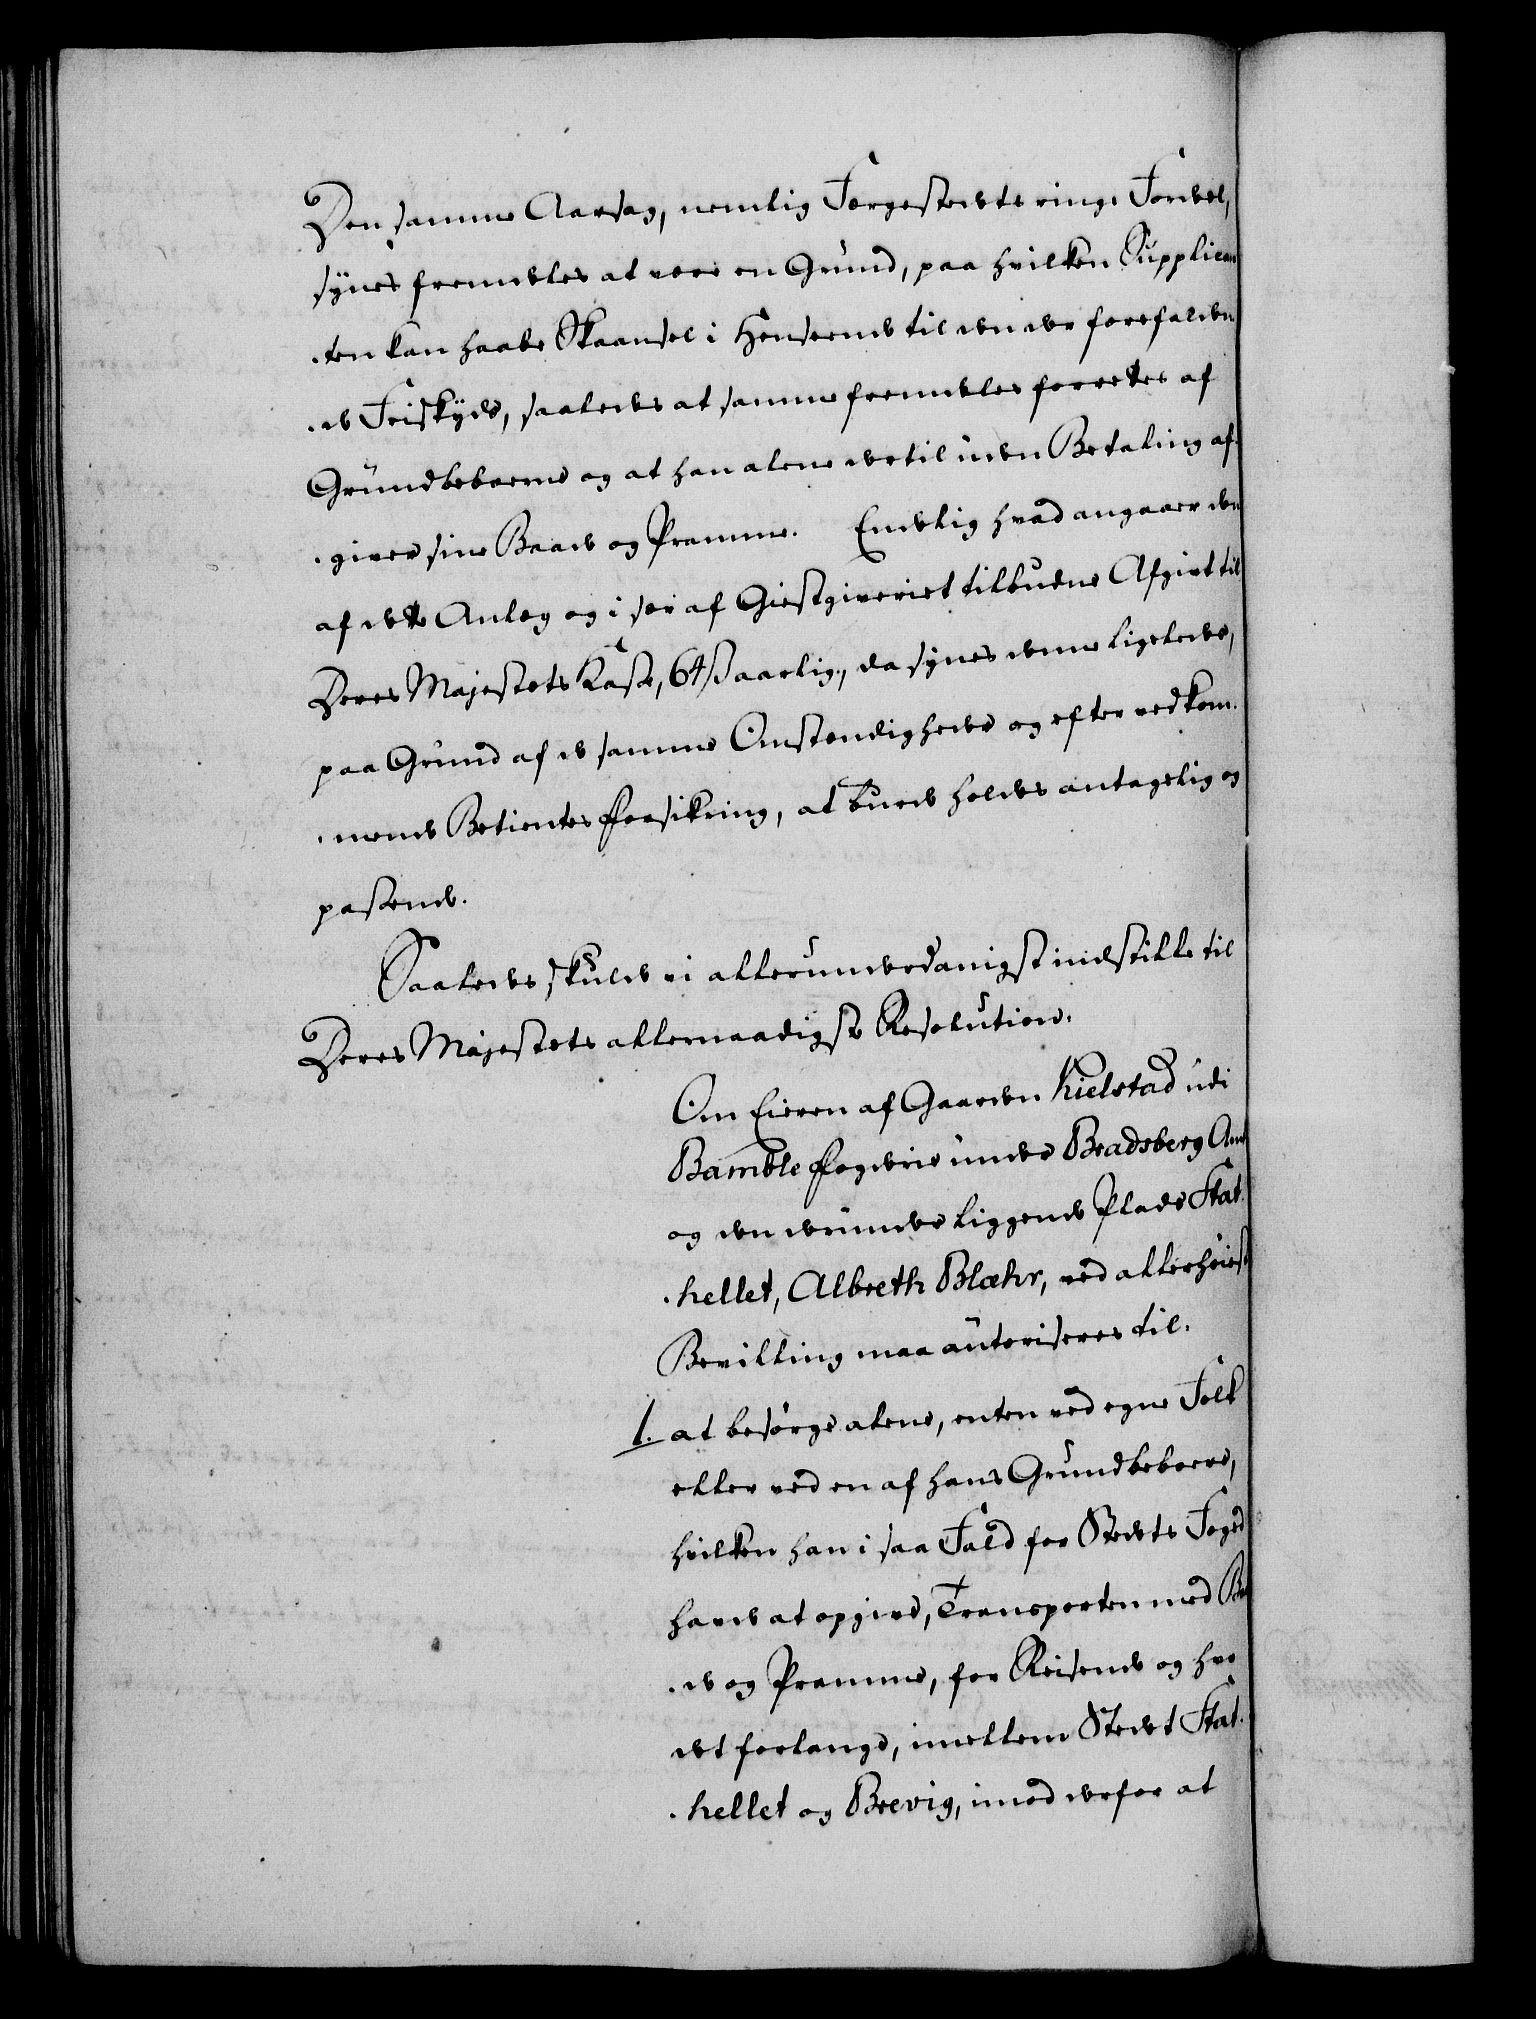 Den samme Aarsag, nemlig Færgestedets ringe Fordel,
synes fremdeles at være en Grund, paa hvilken Supplican
-ten kan haabe Skaansel i Henseende til den der forefalden
-de Friskyds, saaledes at samme fremdeles forrettes af
Grundbeboerne og at han alene dertil uden Betaling af-
-giver sine Baade og Pramme. Endelig hvad angaaer den
af dette Anlæg og i sær af Giestgiveriet tilbudne Afgivt til
Deres Majestets Kasse, 64 s aarlig, da synes denne ligeledes,
paa Grund af de samme Omstændigheder og efter vedkom-
-mende Betientes Forsikring, at burde holdes antagelig og
passende.
Saaledes skulde vi allerunderdanigst indstille til
Deres Majestets allernaadigste Resolution:
Om Eieren af Gaarden Kielstad udi
Bamble Fogderie under Bradsberg Amt
og den derunder liggende Plads Stat-
-hellet, Albreth Blæhr, ved allerhøiest
Bevilling maa autoriseres til:
1. at besørge alene, enten ved egne Folk
eller ved en af hans Grundbeboere,
hvilken han i saa Fald for Stedets Foged
havde at opgive, Transporten med Baa
-de og Pramme, for Reisende og hvo
det forlange, imellem Stedet Stat-
-hellet og Brevig, imod derfor at